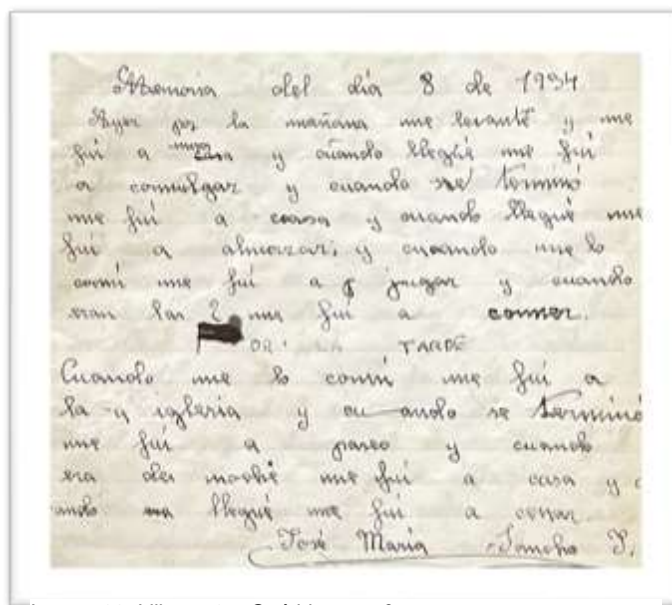 Memoria del día 8 de 1934
Ayer por la mañana me levanté y me
fuí a misa y cuando llegué me fuí
a comulgar y cuando se terminó
me fuí a casa y cuando llegué me
fuí a almorzar, y cuando me lo
comí me fuí a jugar y cuando
eran las 2 me fuí a comer.
POR LA TARDE
Cuando me lo comí me fuí a
la y iglesia y cu ando se terminó
me fuí a paseo y cuando
era de noche me fuí a casa y c
ando llegué me fuí a cenar.
José María Sancho P.